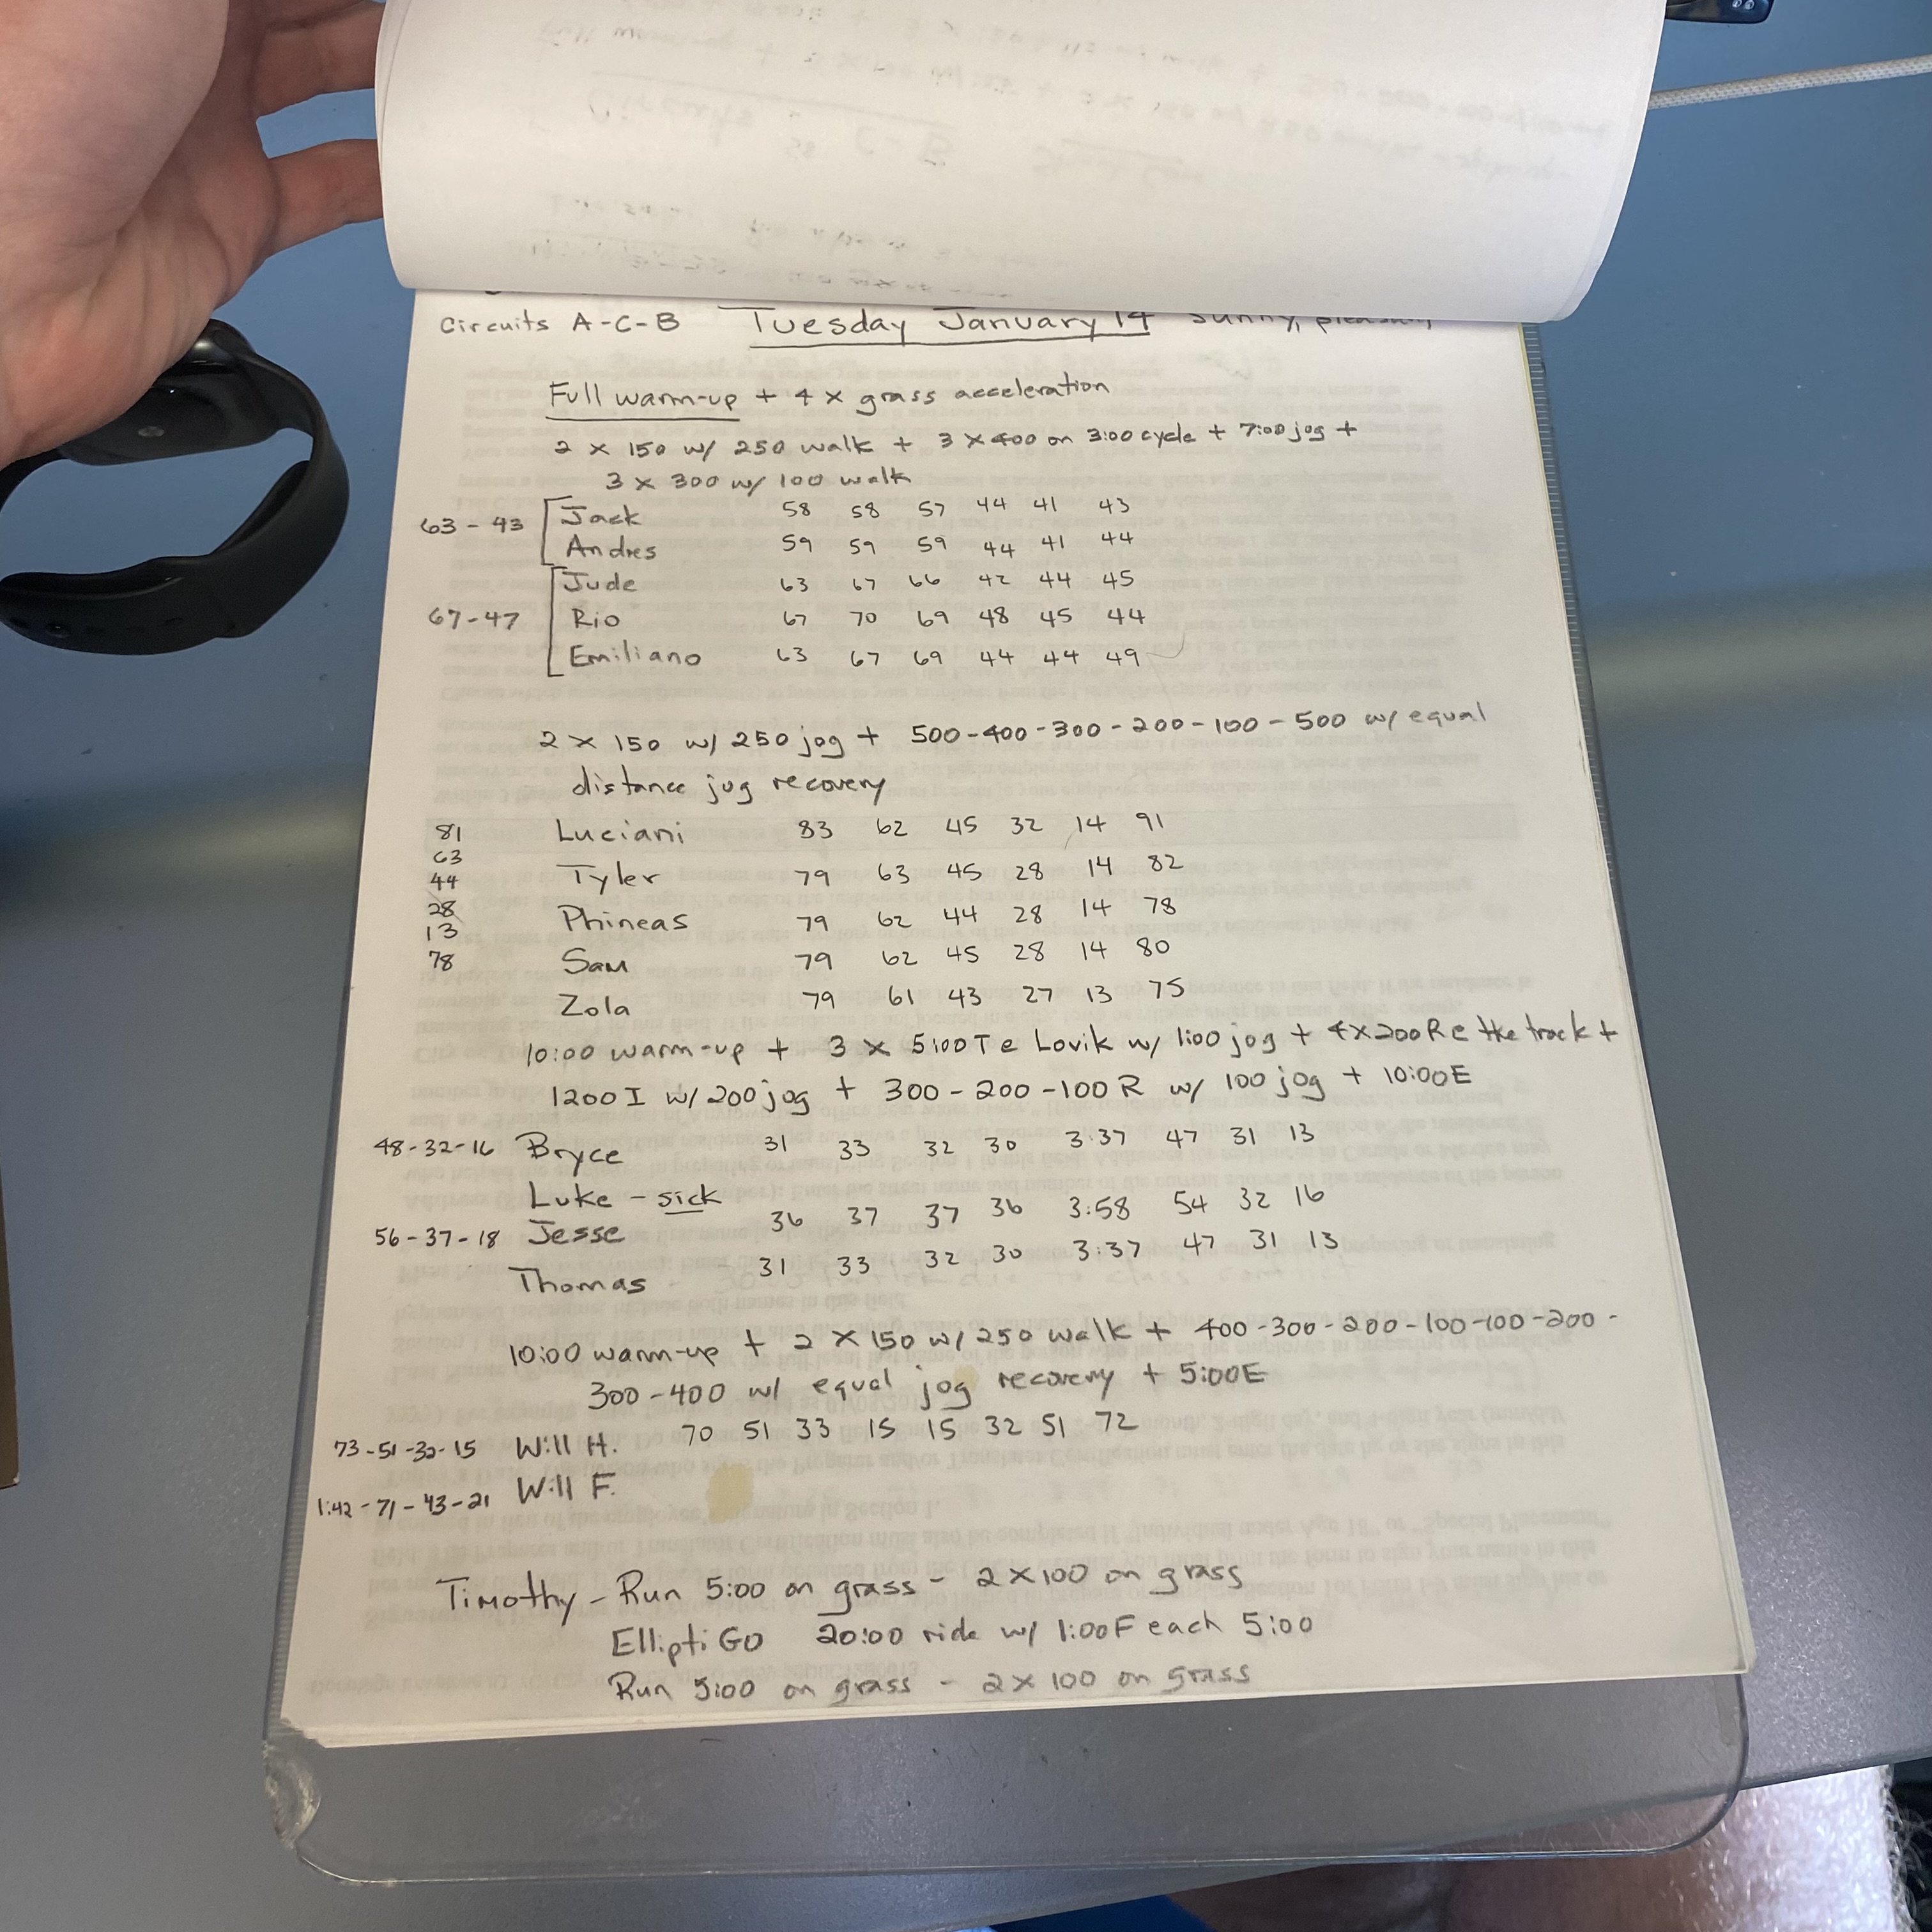 Circuits A-C-B Tuesday January 14 Sunny, pleasant
Full warm-up + 4 x grass acceleration
2 x 150 w/ 250 walk + 3 x 400 on 3:00 cycle + 7:00 jog +
3 x 300 w/ 100 walk
63-43 Jack 58 58 57 44 41 43
Andres 59 59 59 44 41 44
Jude 63 67 66 42 44 45
67-47 Rio 67 70 69 48 45 44
Emiliano 63 67 69 44 44 49
2 x 150 w/ 250 jog + 500-400-300-200-100-500 w/ equal
distance jog recovery
81 Luciani 83 62 45 32 14 91
63
44 Tyler 79 63 45 28 14 82
28 Phineas 79 62 44 28 14 78
13
78 Sam 79 62 45 28 14 80
Zola 79 61 43 27 13 75
10:00 warm-up + 3 x 5:00 T e Lovik w/ 1:00 jog + 4x200 R e the track +
1200 I w/ 200 jog + 300-200-100 R w/ 100 jog + 10:00E
48-32-16 Bryce 31 33 32 30 3:37 47 31 13
Luke - sick
56-37-18 Jesse 36 37 37 36 3:58 54 32 16
Thomas 31 33 32 30 3:37 47 31 13
10:00 warm-up + 2 x 150 w/ 250 walk + 400-300-200-100-100-200-
300-400 w/ equal jog recovery + 5:00E
73-51-32-15 Will H. 70 51 33 15 15 32 51 72
1:42-71-43-21 Will F.
Timothy - Run 5:00 on grass - 2 x 100 on grass
ElliptiGO 20:00 ride w/ 1:00F each 5:00
Run 5:00 on grass - 2 x 100 on grass